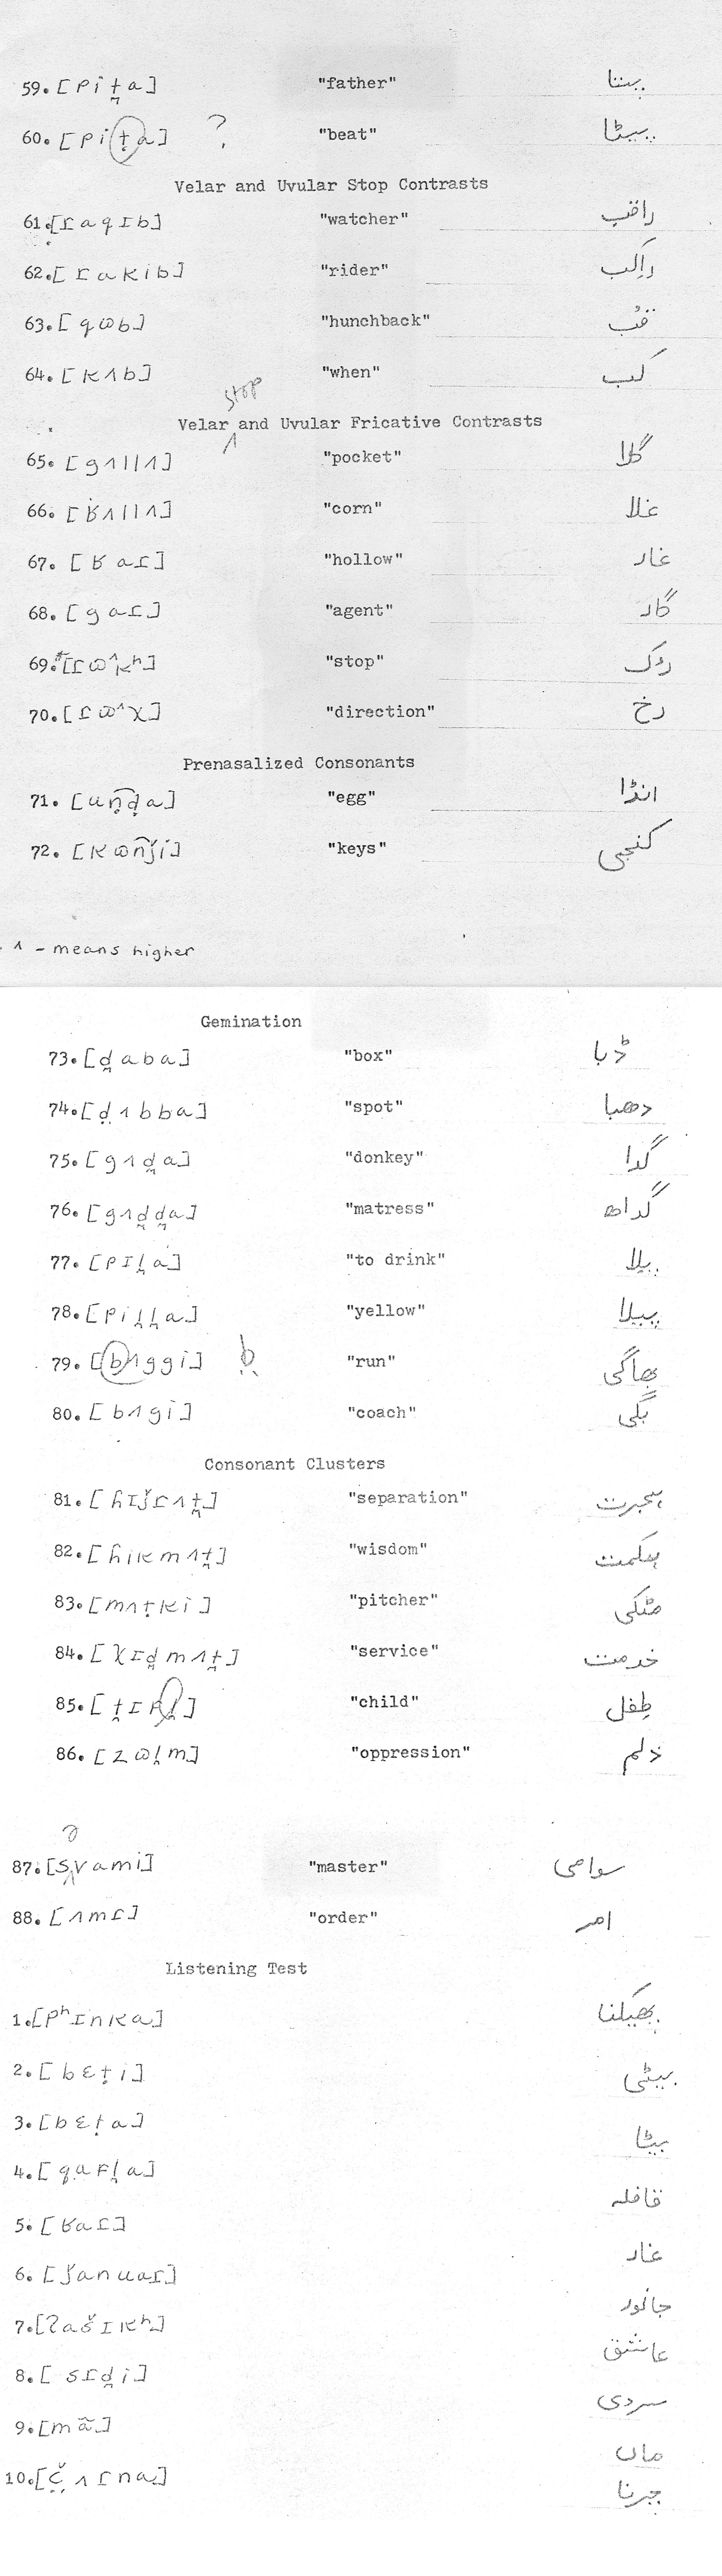 59. [pit̪a] "father" پیتا
60. [piṭa] ? "beat" پیٹا
Velar and Uvular Stop Contrasts
61. [ɾaqɪb] "watcher" راقب
62. [ɾakib] "rider" راکب
63. [qɷb] "hunchback" قُب
64. [kʌb] "when" کب
stop
Velar ʌ and Uvular Fricative Contrasts
65. [gʌllʌ] "pocket" گلا
66. [ʁʌllʌ] "corn" غلا
67. [ʁaɾ] "hollow" غار
68. [gaɾ] "agent" گار
69. [ɾɷ^kʰ] "stop" رُک
70. [ɾɷ^χ] "direction" رخ
Prenasalized Consonants
71. [uṇḍa] "egg" انڈا
72. [kɷñǰi] "keys" کنجی
^ - means higher
Gemination
73. [d̪aba] "box" ڈبا
74. [ḍʌbba] "spot" دھبا
75. [gʌd̪a] "donkey" گدا
76. [gʌd̪d̪a] "matress" گداھ
77. [pɪl̪a] "to drink" پیلا
78. [pil̪l̪a] "yellow" پیلا
79. [bʌggi] b̤ "run" بھاگی
80. [bʌgi] "coach" بگی
Consonant Clusters
81. [ɦɪǰɾʌt̪] "separation" ہجرت
82. [ɦikmʌt̪] "wisdom" ہکمت
83. [mʌṭki] "pitcher" مٹکی
84. [χɪd̪mʌt̪] "service" خدمت
85. "child" طِفل
86. [zɷl̪m] "oppression" ذلم
ə
87. [s ʌ vami] "master" سوامی
88. [ʌmɾ] "order" امر
Listening Test
1. [pʰɪnka] پھیکنا
2. [bɛṭi] بیٹی
3. [bɛṭa] بیٹا
4. [qaFl̪a] قافلہ
5. [ʁaɾ] غار
6. [ǰanuaɾ] جانور
7. [ʔašɪkʰ] عاشق
8. [sɾd̪i] سردی
9. [mã] ماں
10. [č̤ʌɾna] چرنا